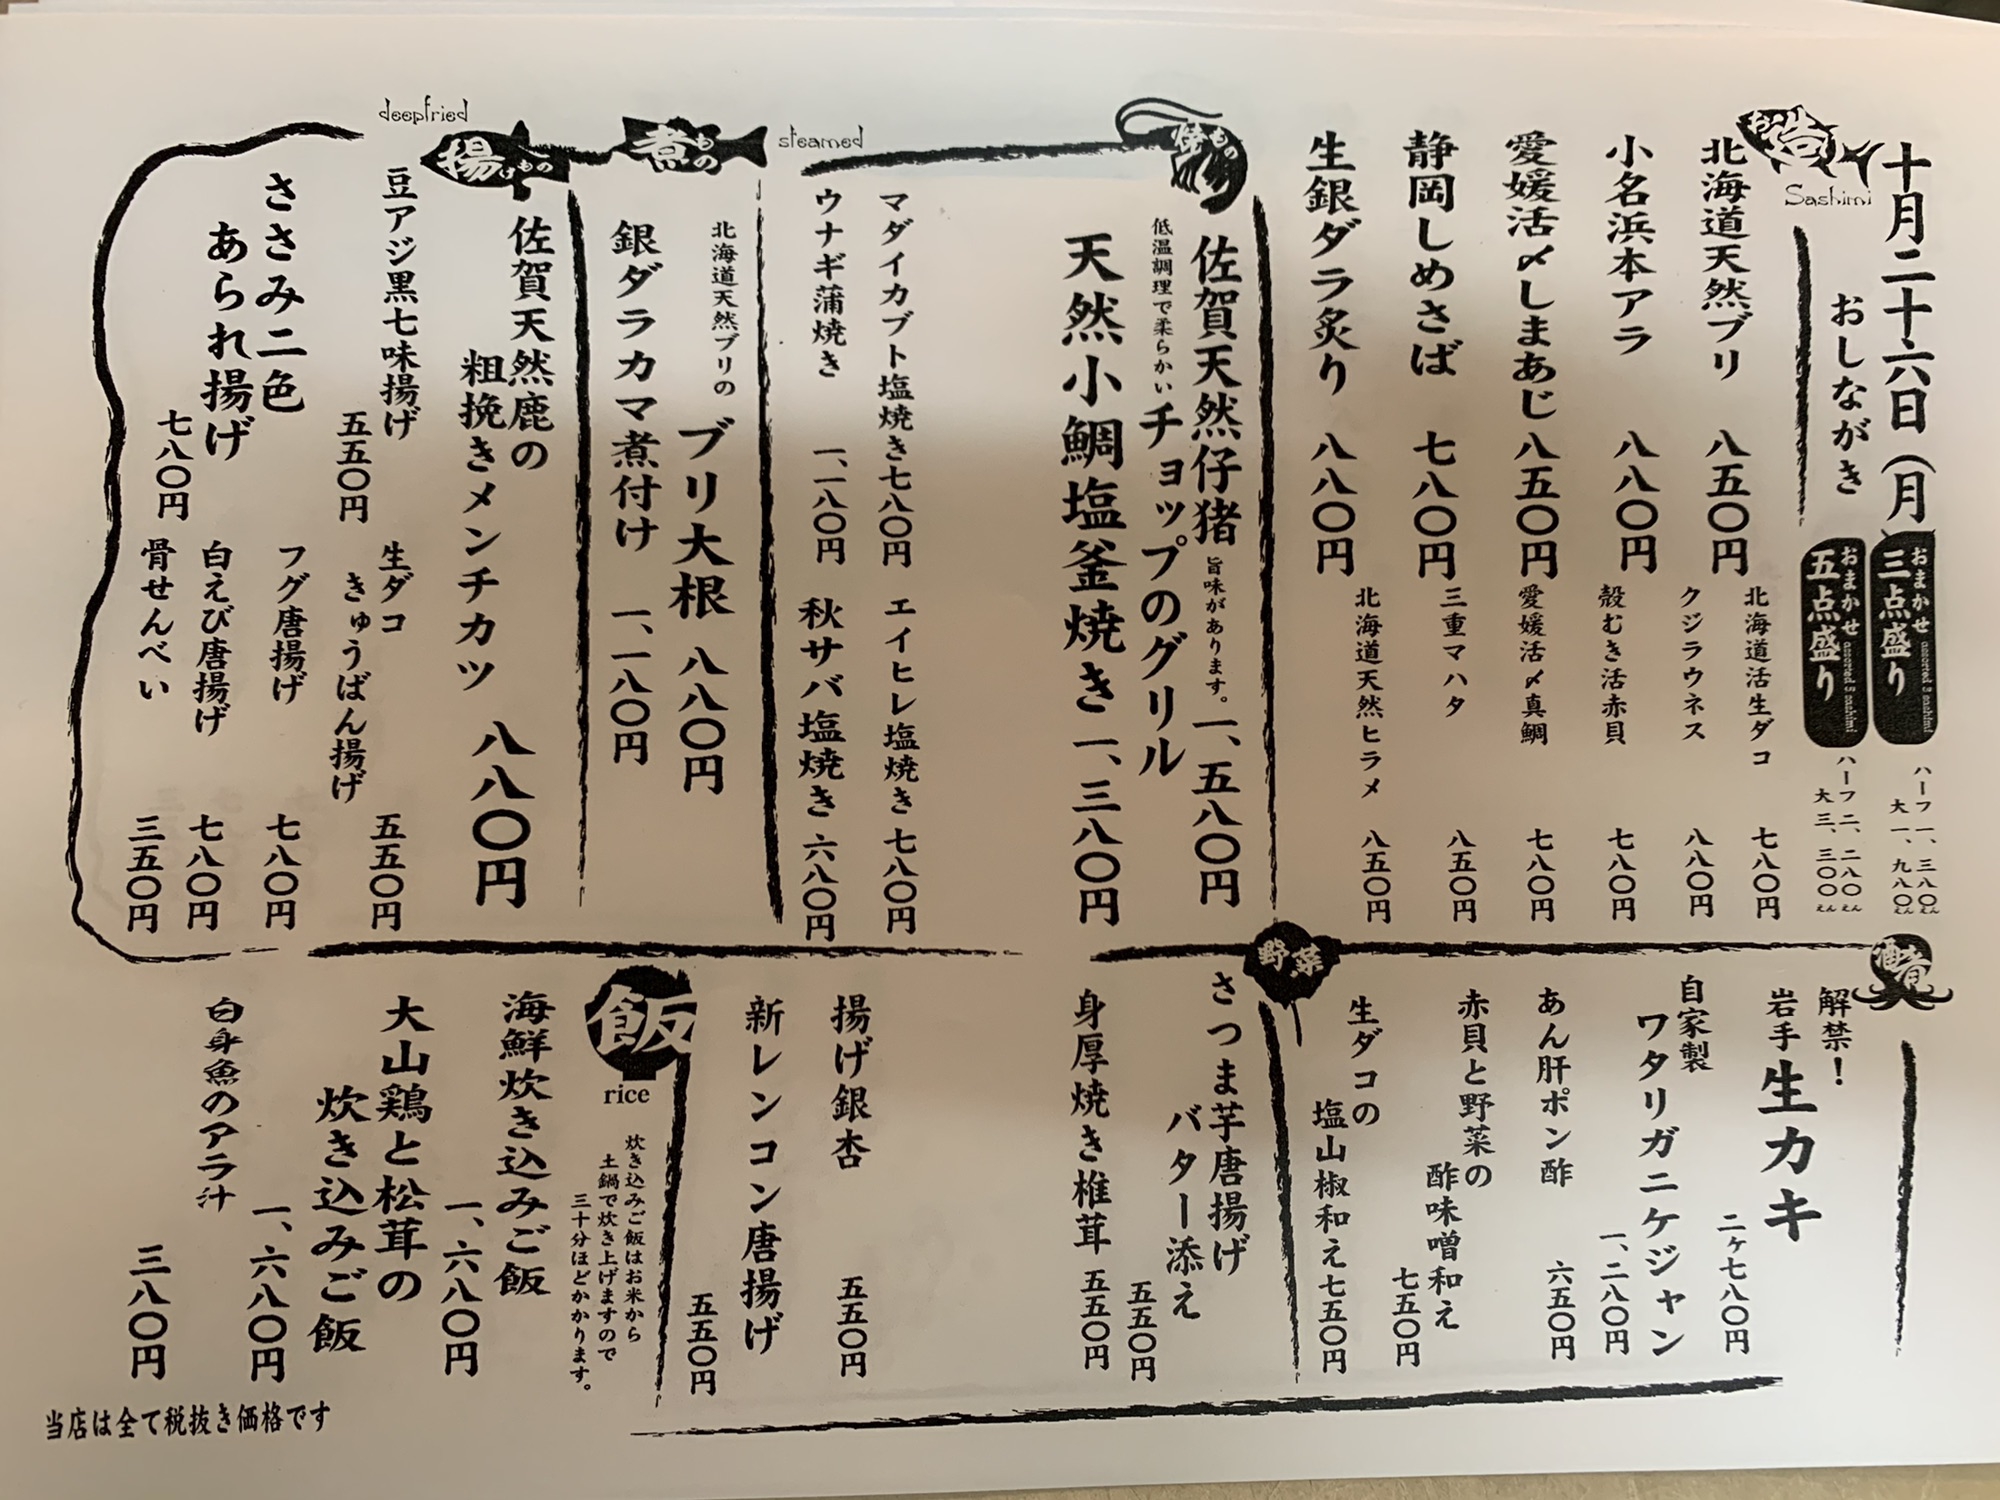 十月二十六日(月
おしながき
おまかせ
三点盛り
ハーフ 一、三八〇えん
大 一、九八〇えん
おまかせ
五点盛り
ハーフ 二、二八〇えん
大 三、三〇〇えん
お造り
Sashimi
北海道天然ブリ 八五〇円
小名浜本アラ 八八〇円
愛媛活〆しまあじ 八五〇円
静岡しめさば 七八〇円
生銀ダラ炙り 八八〇円
北海道活生ダコ 七八〇円
クジラウネス 八八〇円
殻むき活赤貝 七八〇円
愛媛活〆真鯛 七八〇円
三重マハタ 八五〇円
北海道天然ヒラメ 八五〇円
焼もの
佐賀天然仔猪
旨味があります。
低温調理で柔らかい
チョップのグリル
一、五八〇円
天然小鯛塩釜焼き 一、三八〇円
マダイカブト塩焼き 七八〇円
ウナギ蒲焼き 一、一八〇円
エイヒレ塩焼き 七八〇円
秋サバ塩焼き 六八〇円
煮もの
steamed
北海道天然ブリの
ブリ大根 八八〇円
銀ダラカマ煮付け 一、一八〇円
揚げもの
deepfried
佐賀天然鹿の
粗挽きメンチカツ 八八〇円
豆アジ黒七味揚げ
五五〇円
ささみ二色
あられ揚げ
七八〇円
生ダコ
きゅうばん揚げ
五五〇円
フグ唐揚げ 七八〇円
白えび唐揚げ 七八〇円
骨せんべい 三五〇円
酒肴
解禁!
岩手 生カキ
二ヶ七八〇円
自家製
ワタリガニケジャン
一、二八〇円
あん肝ポン酢 六五〇円
赤貝と野菜の
酢味噌和え
七五〇円
生ダコの
塩山椒和え 七五〇円
野菜
さつま芋唐揚げ
バター添え
五五〇円
身厚焼き椎茸 五五〇円
揚げ銀杏 五五〇円
新レンコン唐揚げ
五五〇円
飯
rice
炊き込みご飯はお米から
土鍋で炊き上げますので
三十分ほどかかります。
海鮮炊き込みご飯
一、六八〇円
大山鶏と松茸の
炊き込みご飯
一、六八〇円
白身魚のアラ汁
三八〇円
当店は全て税抜き価格です